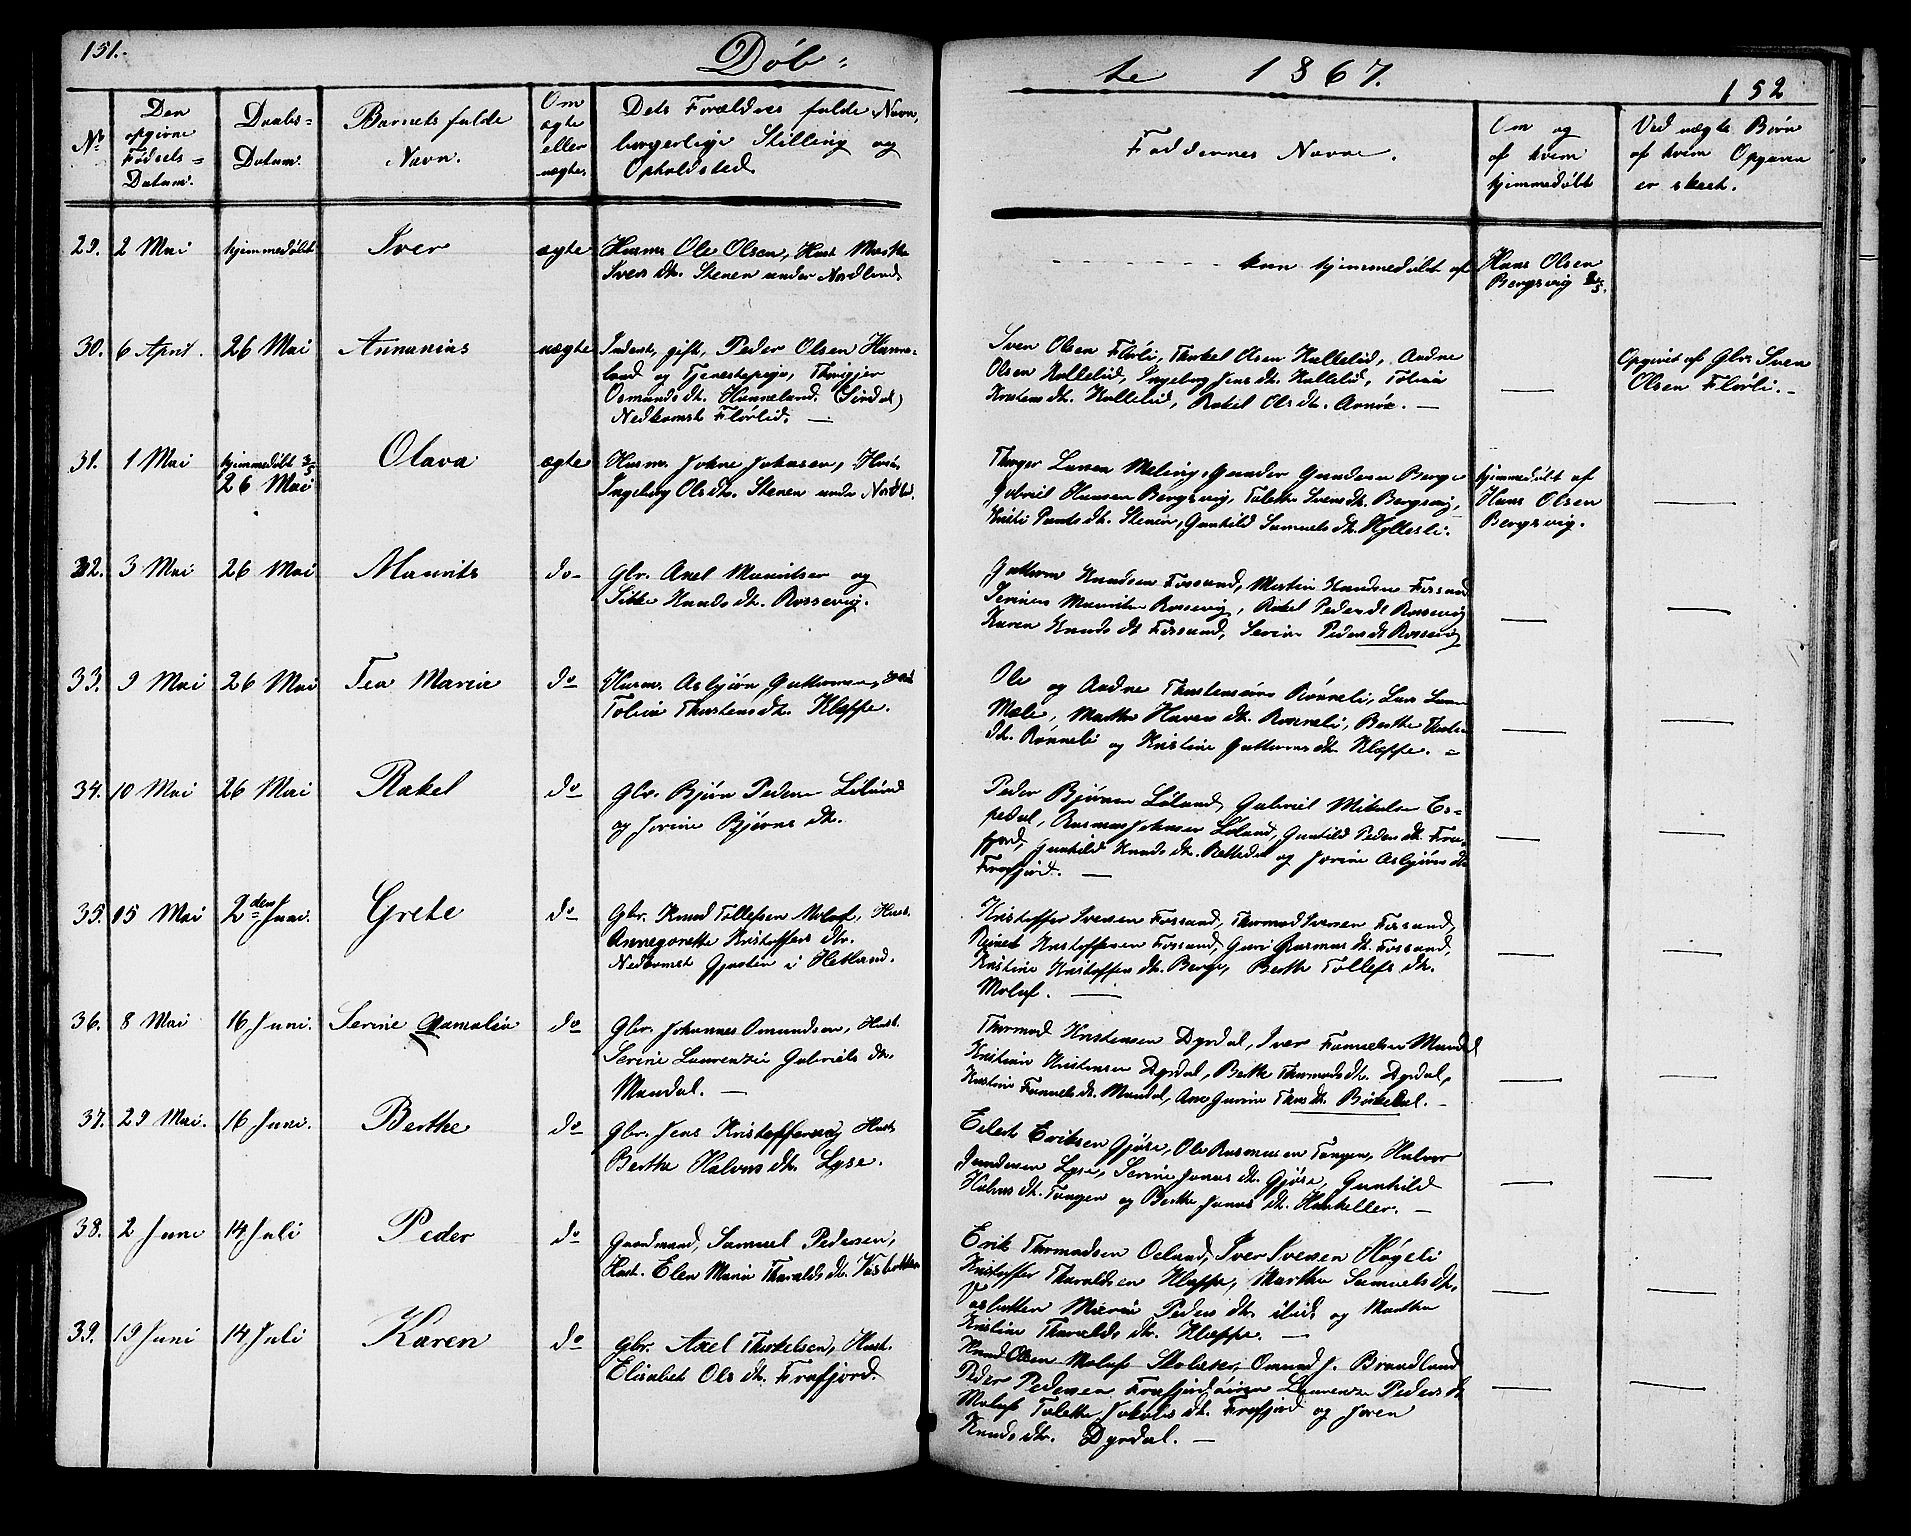 151.
Døb-
te 1867.
152
No
Den opgivne Fødsels- Datum.
Daabs- Datum.
Barnets fulde Navn.
Om ægte eller uægte.
Dets Forældres fulde Navn, borgerlige Stilling og Opholdsted.
Faddernes Navne.
Om og af hvem hjemmedøbt
Ved uægte Børn af hvem Opgaven er skeet.
29. 2 Mai hjemmedøbt Iver ægte Husm. Ole Olsen, Hust
Ivers dtr. Stenen under Nordland
kun hjemmedøbt af Hans Olsen
Bergsvig
30. 6 April. 26 Mai Annanias uægte Inderst, gift, Peder Olsen Hanne-
land og Tjenestepige,
Osmunds dtr. Hanneland. (Sirdal)
Nedkomst Flørlid. —
Sven Olsen Flørli, Thorkel Olsen Kallelid, Andne
Olsen Kallelid, Ingeborg Jens dtr. Kallelid, Tolina
Kristens dtr. Kallelid, Rakel Ols dtr. —
Opgivet af Gbr. Sven
Olsen Flørli. -
31. 1 Mai hjemmedøbt 3/5
26 Mai Olava ægte Husm. Johnsen,
Ingeborg Ols dtr. Stenen under
Larsen Gunder Gundersen Berge
Gabriel Hansen Bergsvig, Tolette Svens dtr. Bergsvig,
dtr. Gunhild Samuels dtr.
hjemmedøbt af
Hans Olsen
Bergsvig.
32. 3 Mai 26 Mai Maurits do- Gbr. Axel Mauritsen og
Knuds dtr. Rossevig.
Guttorm Knudsen Fossand, Martin Knudsen Fossand
Mauritsen Rossevig, Rakel Peders dtr Rossevig
Karen Knuds dtr Fossand, Serine Peders dtr Rossevig
33. 9 Mai 26 Mai Tea Maria do Husm. Asbjörn Guttormsen,
Tolina Thorstens dtr. Klappe.
Ole og Andne Thorstensønner Rønneli, Lars
Mæle, Martha dtr. Berthe
dtr. Rønneli og Kristine Guttorms dtr. Klappe. -
34. 10 Mai 26 Mai Rakel do Gbr. Bjørn Pedersen Løland
og Jorine Bjørns dtr.
Peder Bjørnsen Løland, Gabriel Mikalsen Es-
pedal, Rasmus Johnsen Løland, Gunhild Peders dtr. Fra-
fjord, Gunhild Knuds dtr. og Jorine Asbjörns dtr
Frafjord. —
35. 15 Mai 2den Juni. Grete do Gbr. Knud Tollefsen Moluf, Hust.
Kristoffers dtr.
Nedkomst Gjesten i Hetland.
Kristoffer Svensen Fossand, Thormod Svensen Fossand,
Kristoffersen Fossand, Guri Rasmus dtr. Fossand,
Kristine Kristoffers dtr. Berge, Berthe Tollefs dtr.
Moluf. —
36. 8 Mai 16 Juni. Serine Gamalia do Gbr. Johannes Omundsen, Hust.
Serine Laurenze Gabriels dtr.
Mandal. —
Thormod Kristensen Dyrdal, Iver Mandal
Kristensen Dyrdal, Berthe Thormods dtr. Dyrdal,
Kristine dtr. Mandal, Ane Gurine dtr.
37. 29 Mai. 16 Juni. Berthe do Gbr. Jens Kristoffersen Hust.
Berthe Halvors dtr. Lyse.
Eilert Eriksen Gjøse, Ole Rasmussen Tangen, Halvor
Gundersen Lyse, Serine Jonas dtr. Gjøse, Gunhild
Halvors dtr. Tangen og Berthe Jonas dtr. —
38. 2 Juni 14 Juli Peder do Gaardmand, Samuel Pedersen,
Hust. Elen Maria Tharalds dtr.
Erik Thormodsen Oeland, Iver Svensen Høgeli
Kristoffer Tharaldsen Klappe, Martha Samuels dtr.
Maria Peders dtr. og Martha
Kristine Tharalds dtr. Klappe. —
39. 19 Juni 14 Juli Karen do Gbr. Axel Thorkelsen, Hust.
Elisabet Ols dtr. Frafjord.
Knud Olsen Moluf Skolelær, Omund J. Brandland
Peder Pedersen Frafjord, Laurenze Peders dtr
Moluf Tolette Jakobs dtr. Frafjord og Joren
Knuds dtr. Dyrdal. —